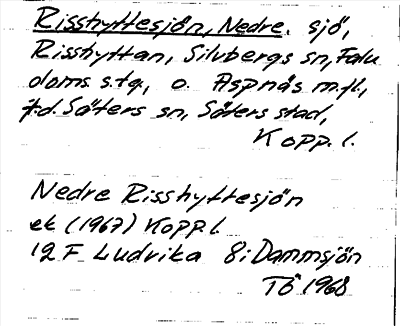 Risshyttesjön, Nedre. sjö,
Risshyttan, Silvbergs sn, Falu
doms. s. tg., o. Aspnäs m.fl.,
f.d. Säters sn, Säters stad,
Kopp. l.
Nedre Risshyttesjön
ek (1967) Kopp. l.
12 F Ludvika 8i Dammsjön
TÖ 1968